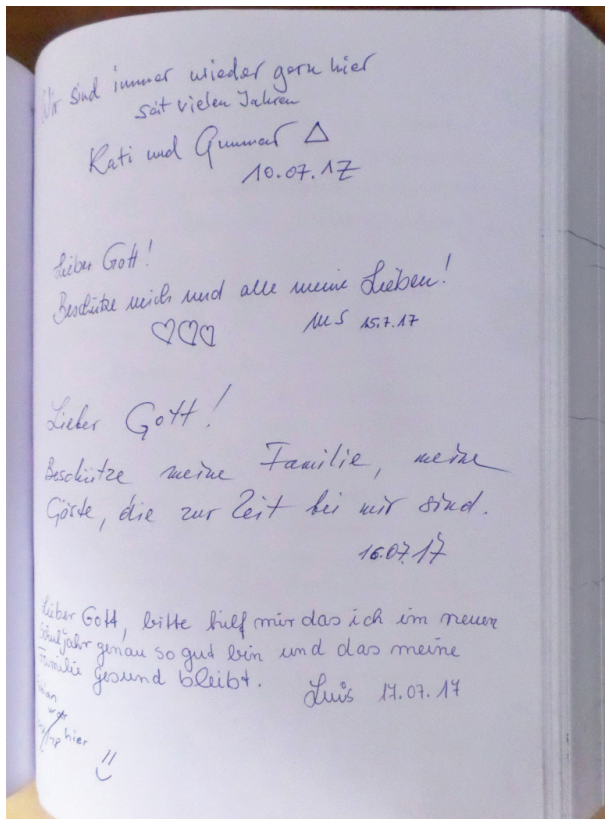 Wir sind immer wieder gern hier
seit vielen Jahren
Kati und Gunnar
10.07.17
Lieber Gott!
Beschütze mich und alle meine Lieben!
MS 15.7.17
Lieber Gott!
Beschütze meine Familie, meine
Gäste, die zur Zeit bei mir sind.
16.07.17
Lieber Gott, bitte hilf mir das ich im neuen
Schuljahr genau so gut bin und das meine
Familie gesund bleibt. Luis 17.07.17
war
hier